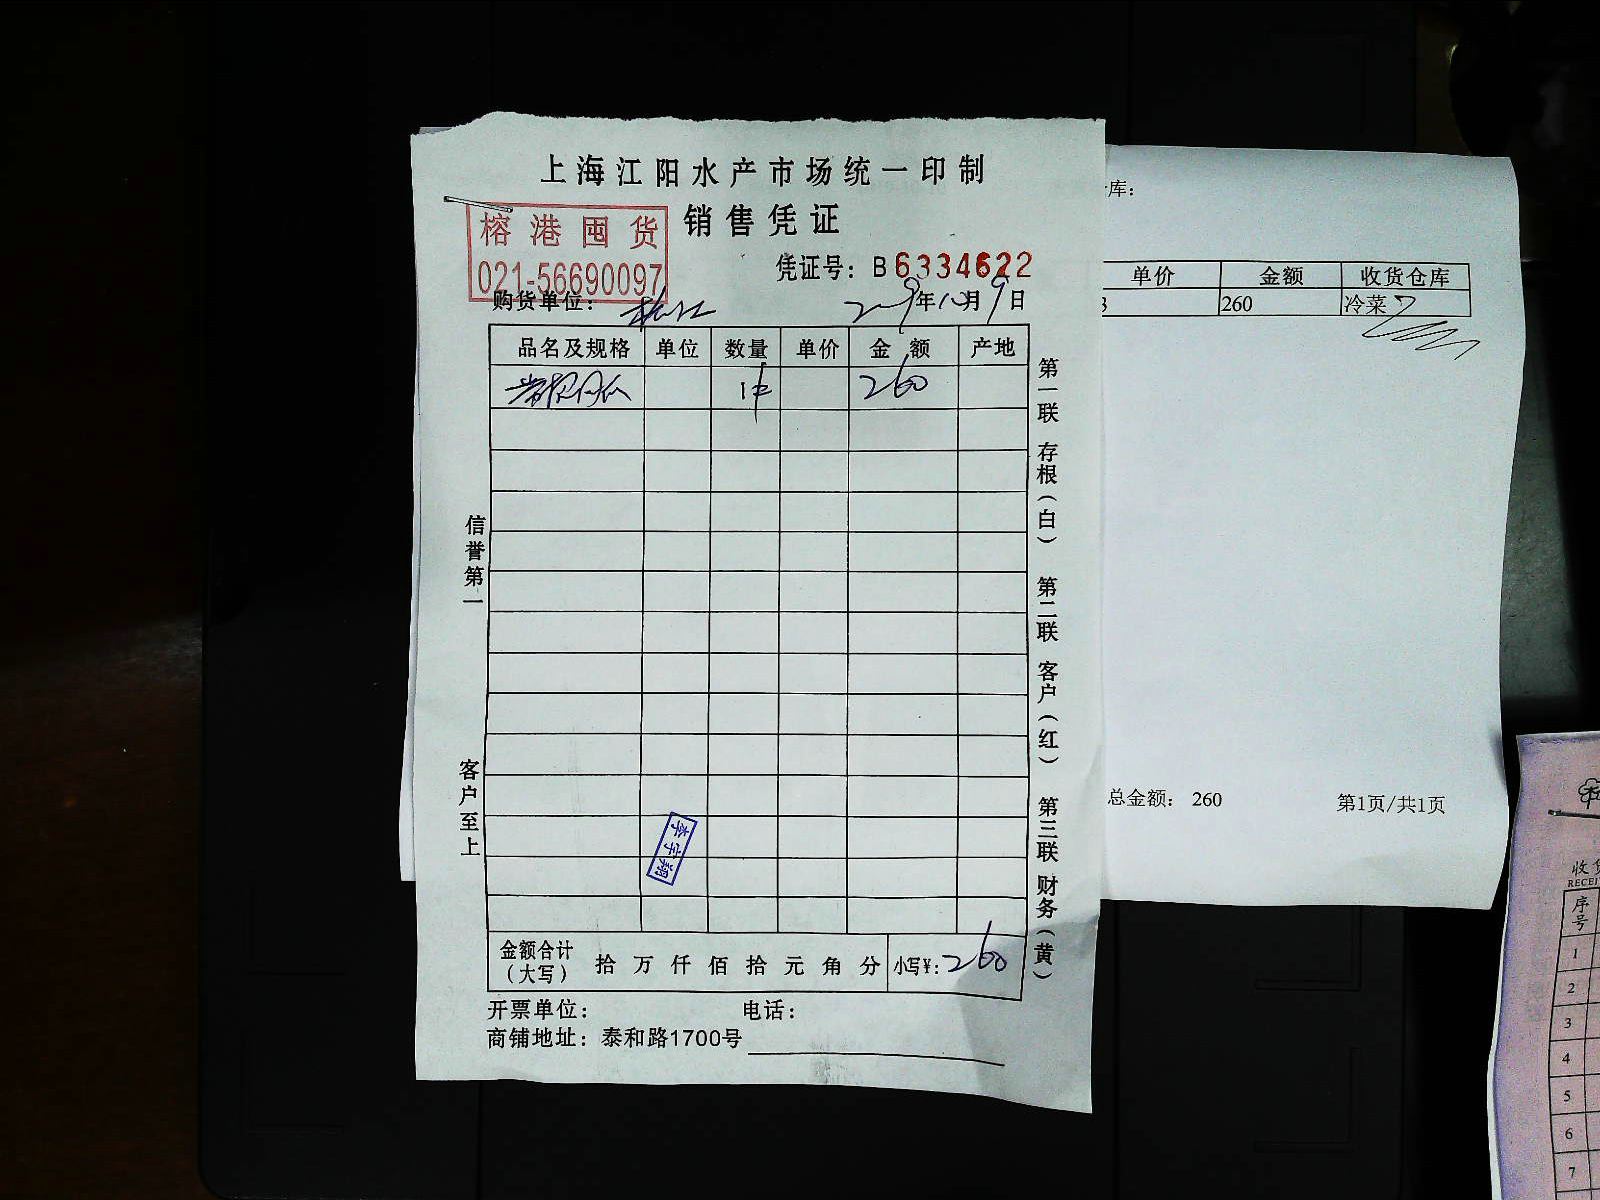 上海江阳水产市场统一印制
销售凭证
榕港囤货
021-56690097
凭证号：B6334622
购货单位：
年10月9日
品名及规格 单位 数量 单价 金额 产地
1件 260
信誉第一
客户至上
第一联 存根（白） 第二联 客户（红） 第三联 财务（黄）
李宇翔
金额合计（大写） 拾 万 仟 佰 拾 元 角 分 小写¥：260
开票单位： 电话：
商铺地址：泰和路1700号
库：
单价 金额 收货仓库
260 冷菜
总金额： 260 第1页/共1页
收
RECEI
序号
1
2
3
4
5
6
7